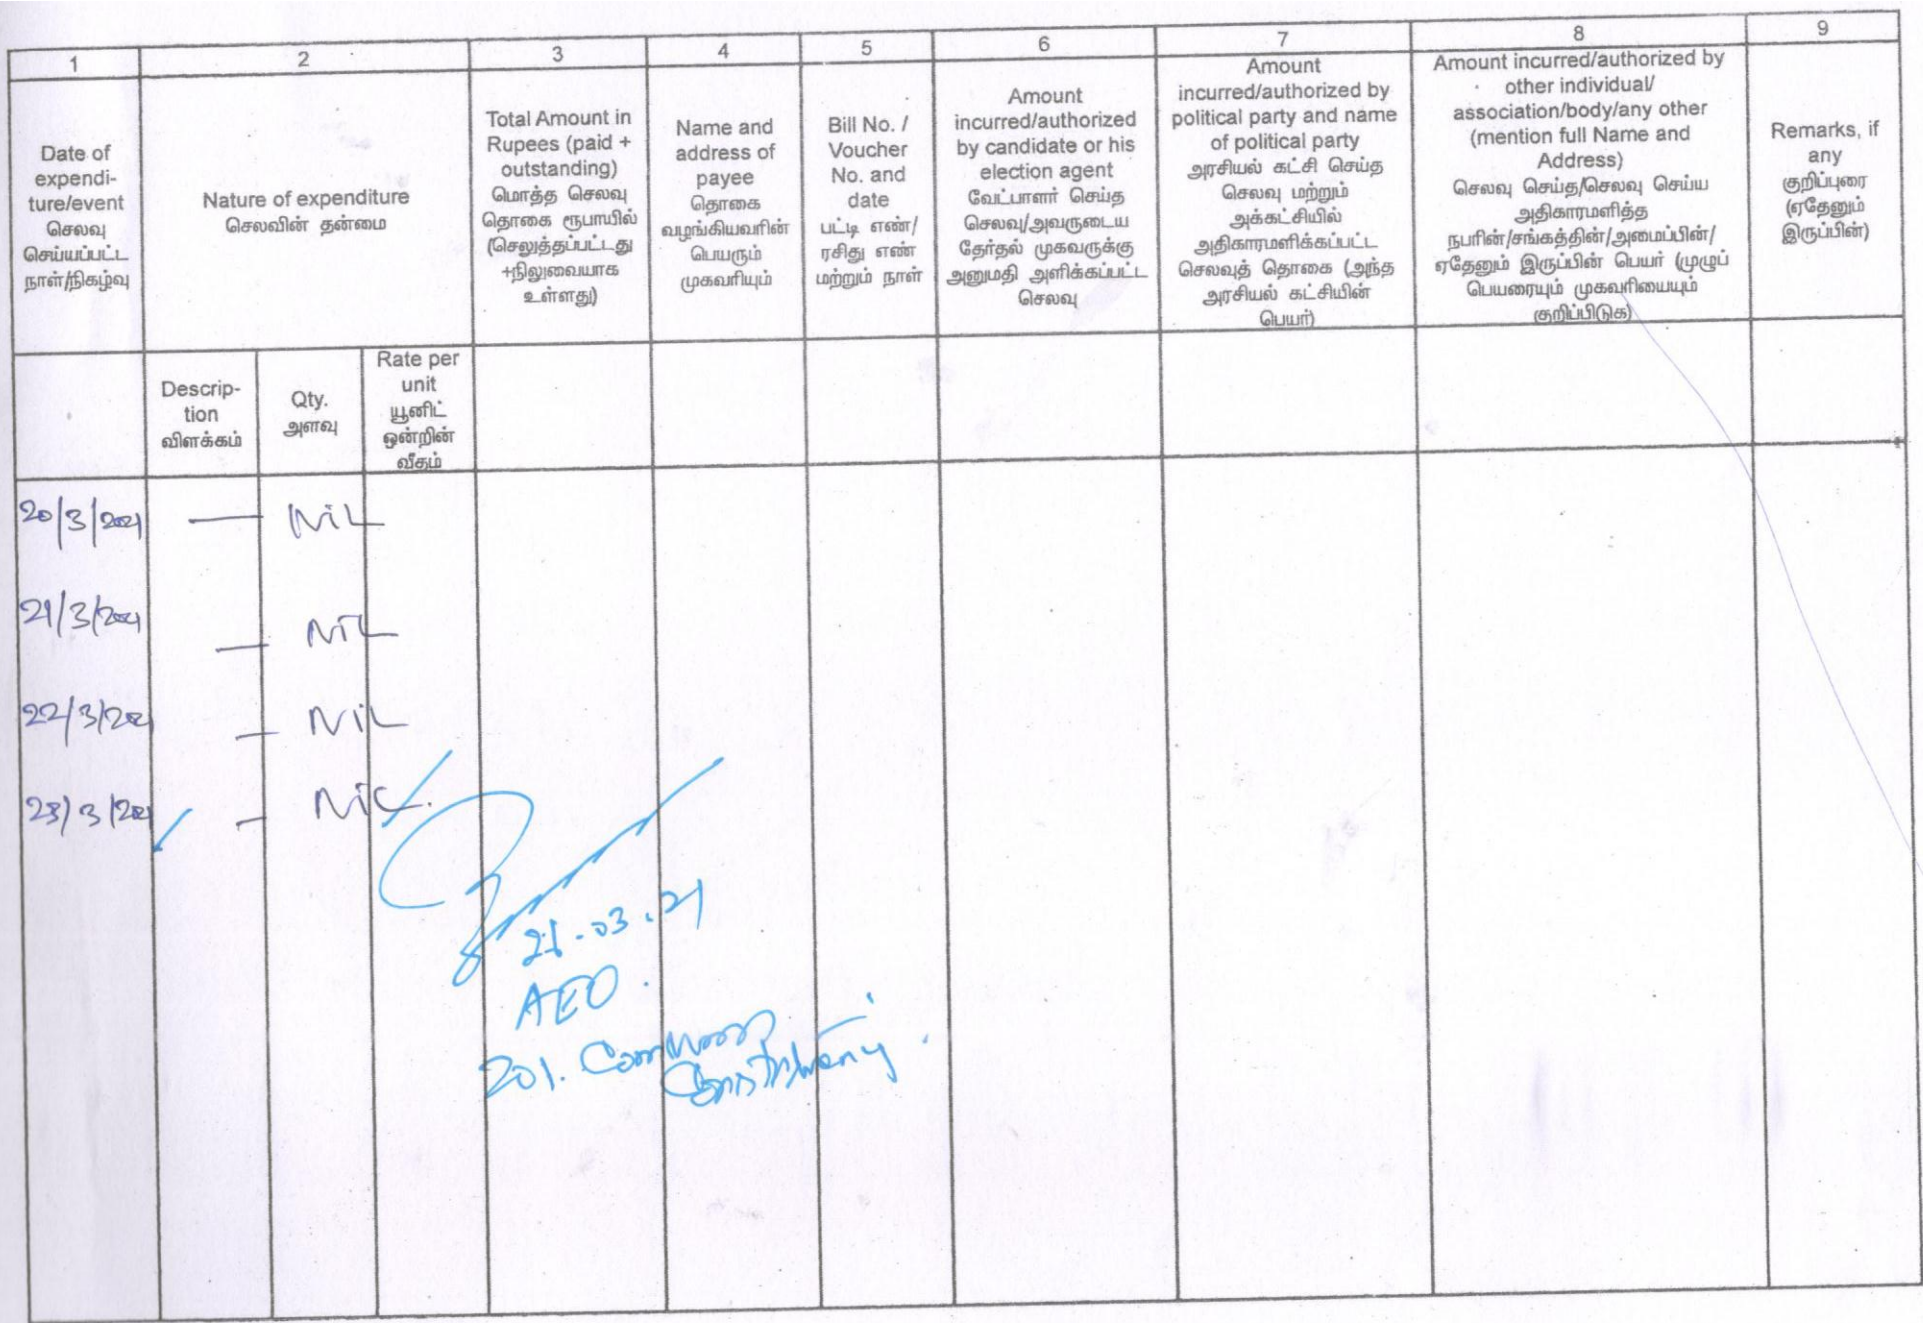 1
2
3
4
5
6
7
8
9
Date of
expendi-
ture/event
செலவு
செய்யப்பட்ட
நாள்/நிகழ்வு
Nature of expenditure
செலவின் தன்மை
Total Amount in
Rupees (paid +
outstanding)
மொத்த செலவு
தொகை ரூபாயில்
(செலுத்தப்பட்டது
+நிலுவையாக
உள்ளது)
Name and
address of
payee
தொகை
வழங்கியவரின்
பெயரும்
முகவரியும்
Bill No. /
Voucher
No. and
date
பட்டி எண்/
ரசிது எண்
மற்றும் நாள்
Amount
incurred/authorized
by candidate or his
election agent
வேட்பாளர் செய்த
செலவு/அவருடைய
தேர்தல் முகவருக்கு
அனுமதி அளிக்கப்பட்ட
செலவு
Amount
incurred/authorized by
political party and name
of political party
அரசியல் கட்சி செய்த
செலவு மற்றும்
அக்கட்சியில்
அதிகாரமளிக்கப்பட்ட
செலவுத் தொகை (அந்த
அரசியல் கட்சியின்
பெயர்)
Amount incurred/authorized by
other individual/
association/body/any other
(mention full Name and
Address)
செலவு செய்த/செலவு செய்ய
அதிகாரமளித்த
நபரின்/சங்கத்தின்/அமைப்பின்/
ஏதேனும் இருப்பின் பெயர் (முழுப்
பெயரையும் முகவரியையும்
குறிப்பிடுக)
Remarks, if
any
குறிப்புரை
(ஏதேனும்
இருப்பின்)
Descrip-
tion
விளக்கம்
Qty.
அளவு
Rate per
unit
யூனிட்
ஒன்றின்
வீதம்
20/3/2021 — NIL
21/3/2021 — NIL
22/3/2021 — NIL
23/3/2021 — NIL.
.03.21
AEO.
201.
Constituency.